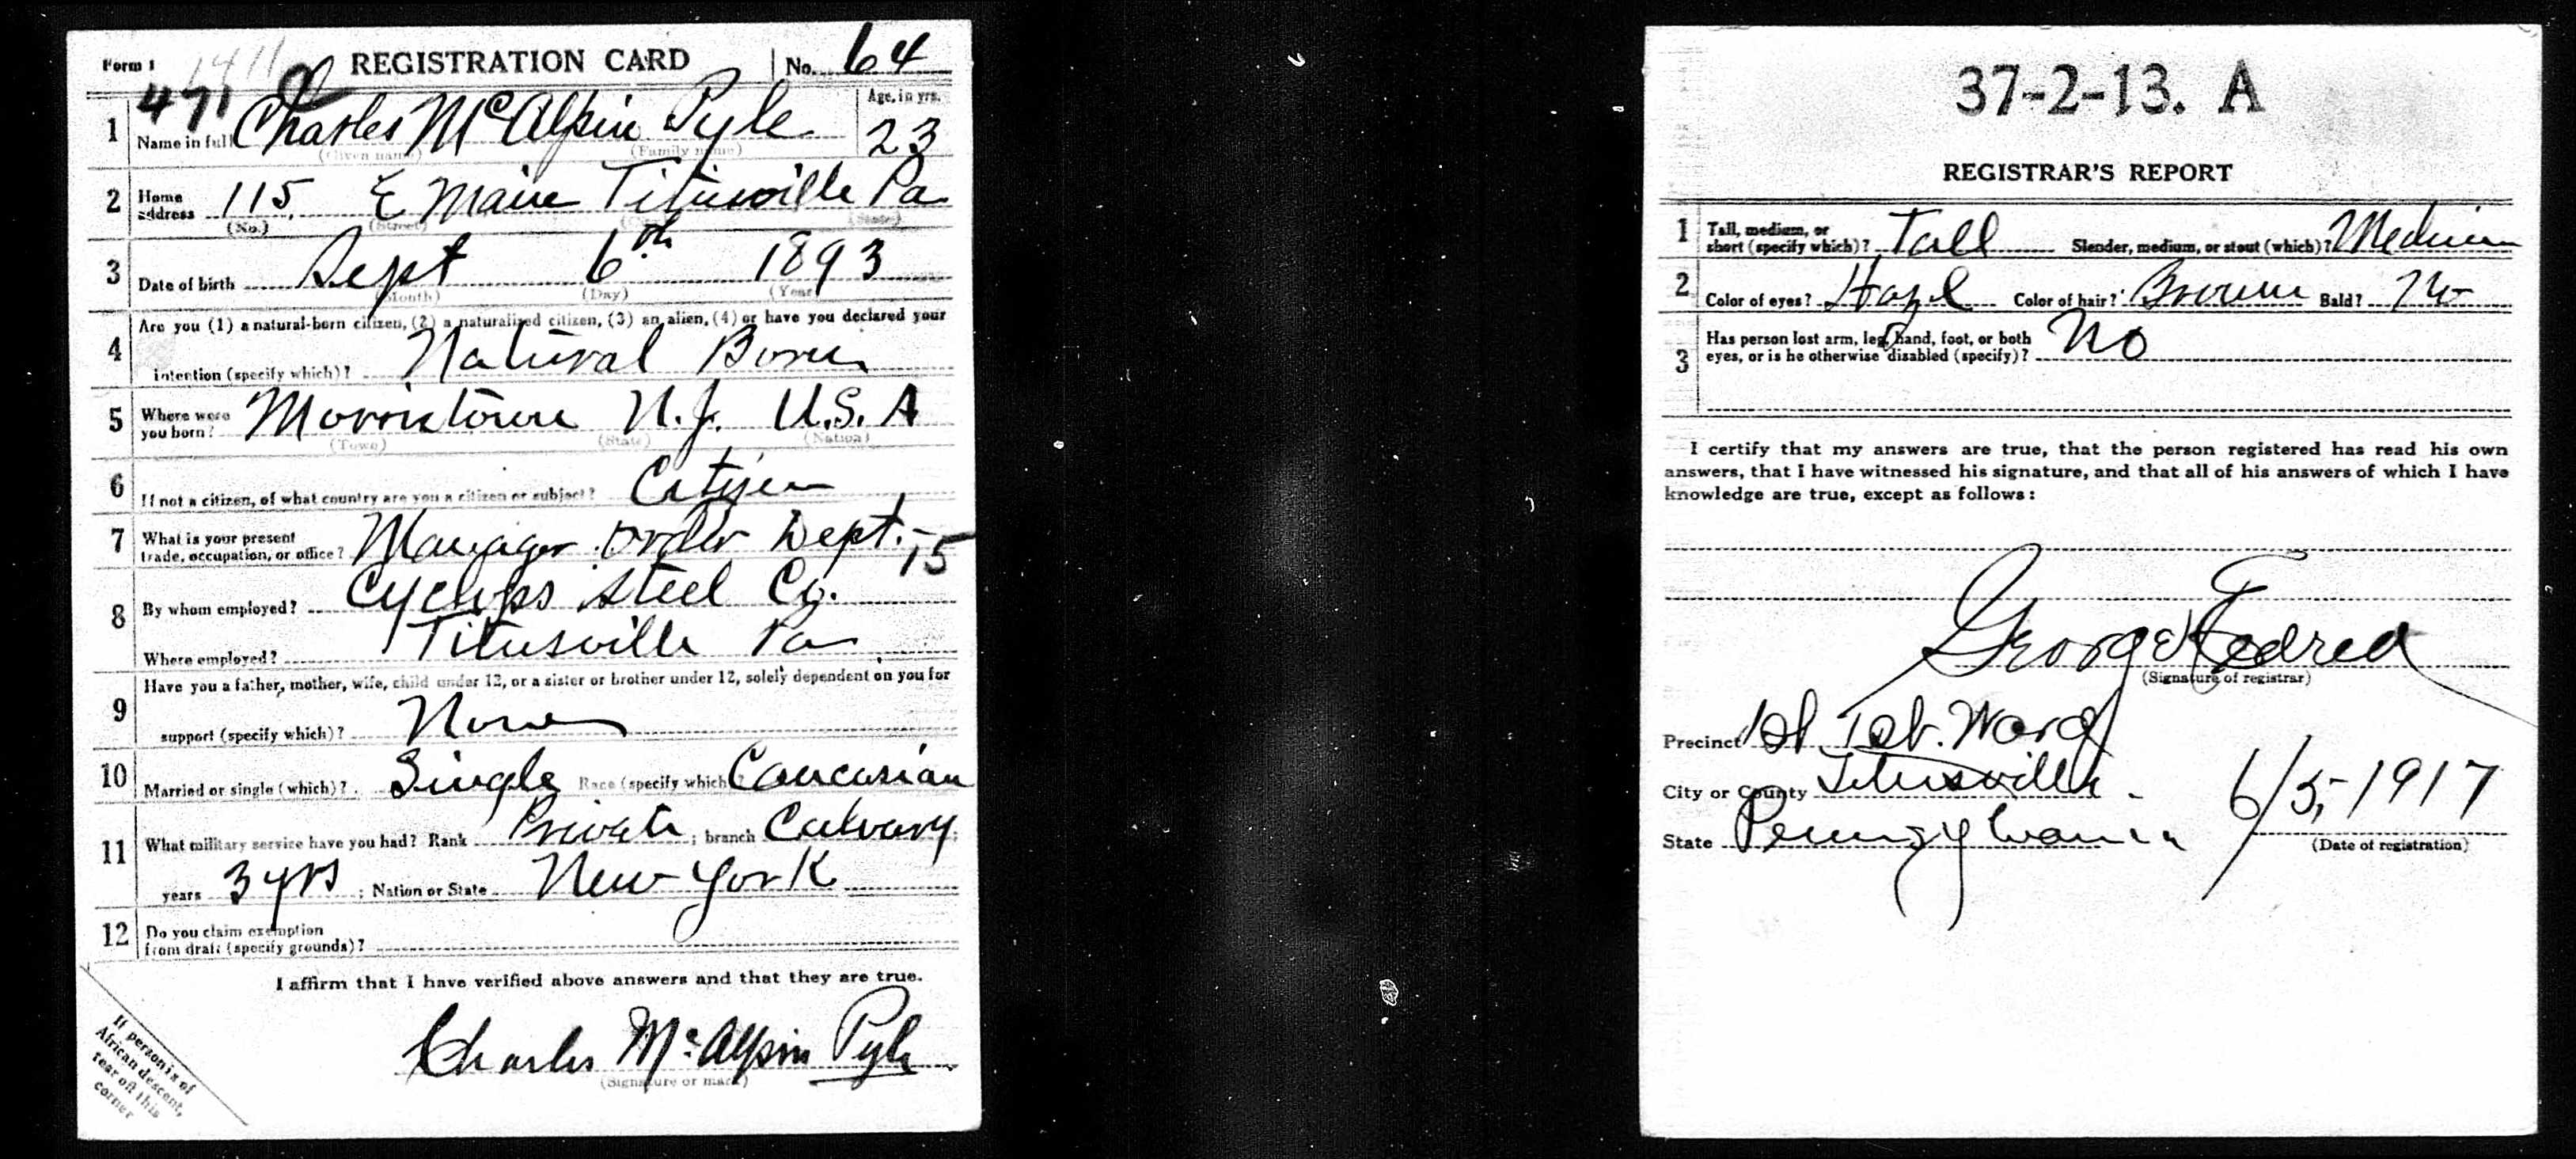 Form 1 1411 REGISTRATION CARD No. 64
471
1 Name in full Charles McAlpin Pyle Age, in yrs. 23
(Given name) (Family name)
2 Home address 115. E Main Titusville Pa
(No.) (Street) (City) (State)
3 Date of birth Sept 6th 1893
(Month) (Day) (Year)
4 Are you (1) a natural-born citizen, (2) a naturalized citizen, (3) an alien, (4) or have you declared your
intention (specify which)? Natural Born
5 Where were you born? Morristown N.J. U.S.A
(Town) (State) (Nation)
6 If not a citizen, of what country are you a citizen or subject? Citizen
7 What is your present trade, occupation, or office? Manager order Dept. 15
8 By whom employed? Cyclops Steel Co.
Where employed? Titusville Pa
9 Have you a father, mother, wife, child under 12, or a sister or brother under 12, solely dependent on you for
support (specify which)? None
10 Married or single (which)? Single Race (specify which)? Caucasian
11 What military service have you had? Rank Private ; branch Calvary ;
years 3 yrs ; Nation or State New York
12 Do you claim exemption from draft (specify grounds)?
I affirm that I have verified above answers and that they are true.
Charles McAlpin Pyle
(Signature or mark)
If person is of
African descent,
tear off this
corner
37-2-13. A
REGISTRAR'S REPORT
1 Tall, medium, or short (specify which)? Tall Slender, medium, or stout (which)? Medium
2 Color of eyes? Hazel Color of hair? Brown Bald? No
3 Has person lost arm, leg, hand, foot, or both eyes, or is he otherwise disabled (specify)? No
I certify that my answers are true, that the person registered has read his own
answers, that I have witnessed his signature, and that all of his answers of which I have
knowledge are true, except as follows:
George
(Signature of registrar)
Precinct 1st Ward
City or County Titusville
State Pennsylvania 6/5-1917
(Date of registration)